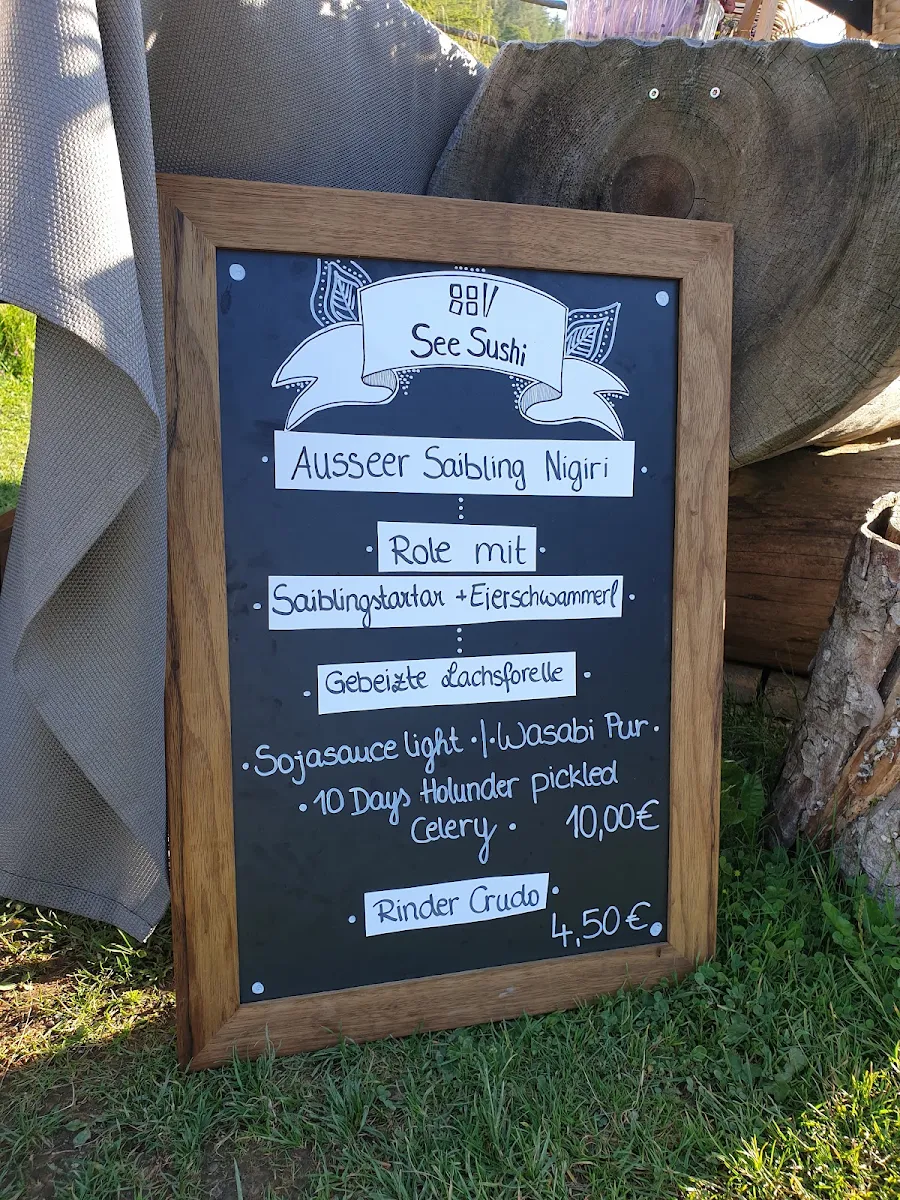 See Sushi
Ausseer Saibling Nigiri
Role mit
Saiblingstartar + Eierschwammerl
Gebeizte Lachsforelle
· Sojasauce light · | · Wasabi Pur ·
· 10 Days Holunder pickled
Celery · 10,00€
Rinder Crudo
4,50€